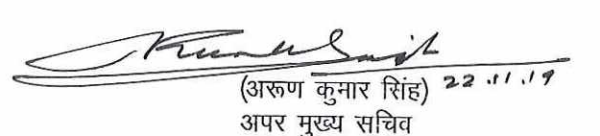 (अरूण कुमार सिंह) 22.11.19
अपर मुख्य सचिव